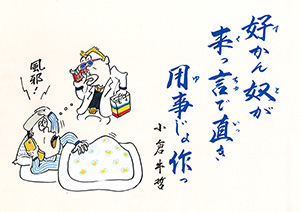 好かん奴が
来っ言で直き
用事じょ作っ
小倉半哲
風邪!